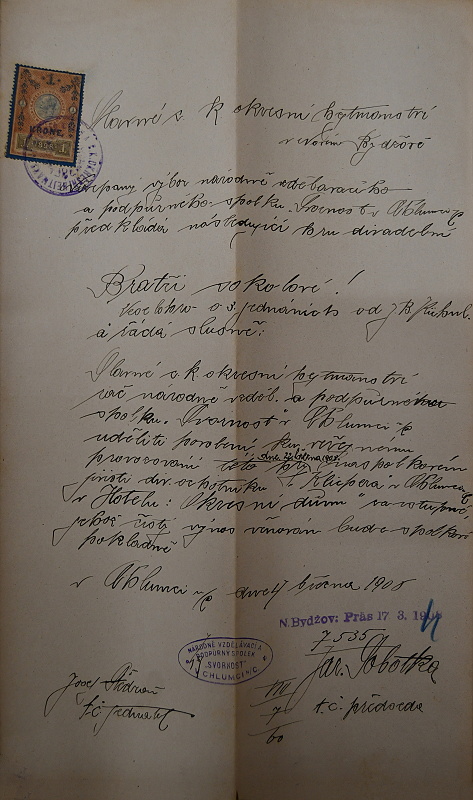 1
KRONE
1898
Slavné c. k. okresní hejtmanství
v Novém Bydžově
výbor národně vzdělávacího
a podpůrného spolku "Svornost" v Chlumci n/C
předkládá následující hru divadelní
Bratři sokolové!
Veselohra o 3 jednáních od J. B.
a žádá slušně:
Slavné c. k. okresní hejtmanství
rač národně vzděl. a podpůrnému
spolku "Svornost" v Chlumci n/C
uděliti povolení ku veřejnému
dne 22. března 1908
provozování této hry spolkovém
jeviti div. ochotníků "Klicpera" v Chlumci n/C
v Hotelu: "Okresní dům" za vstupné
jehož čistý výnos věnován bude spolkové
pokladně
v Chlumci n/C dne 17 března 1908
N. Bydžov: Präs 17 3. 1908
7535
NÁRODNĚ VZDĚLÁVACÍ A
PODPŮRNÝ SPOLEK
"SVORNOST"
CHLUMEC N/C.
Jar. Sobotka
t. č. předseda
Josef
t. č. jednatel